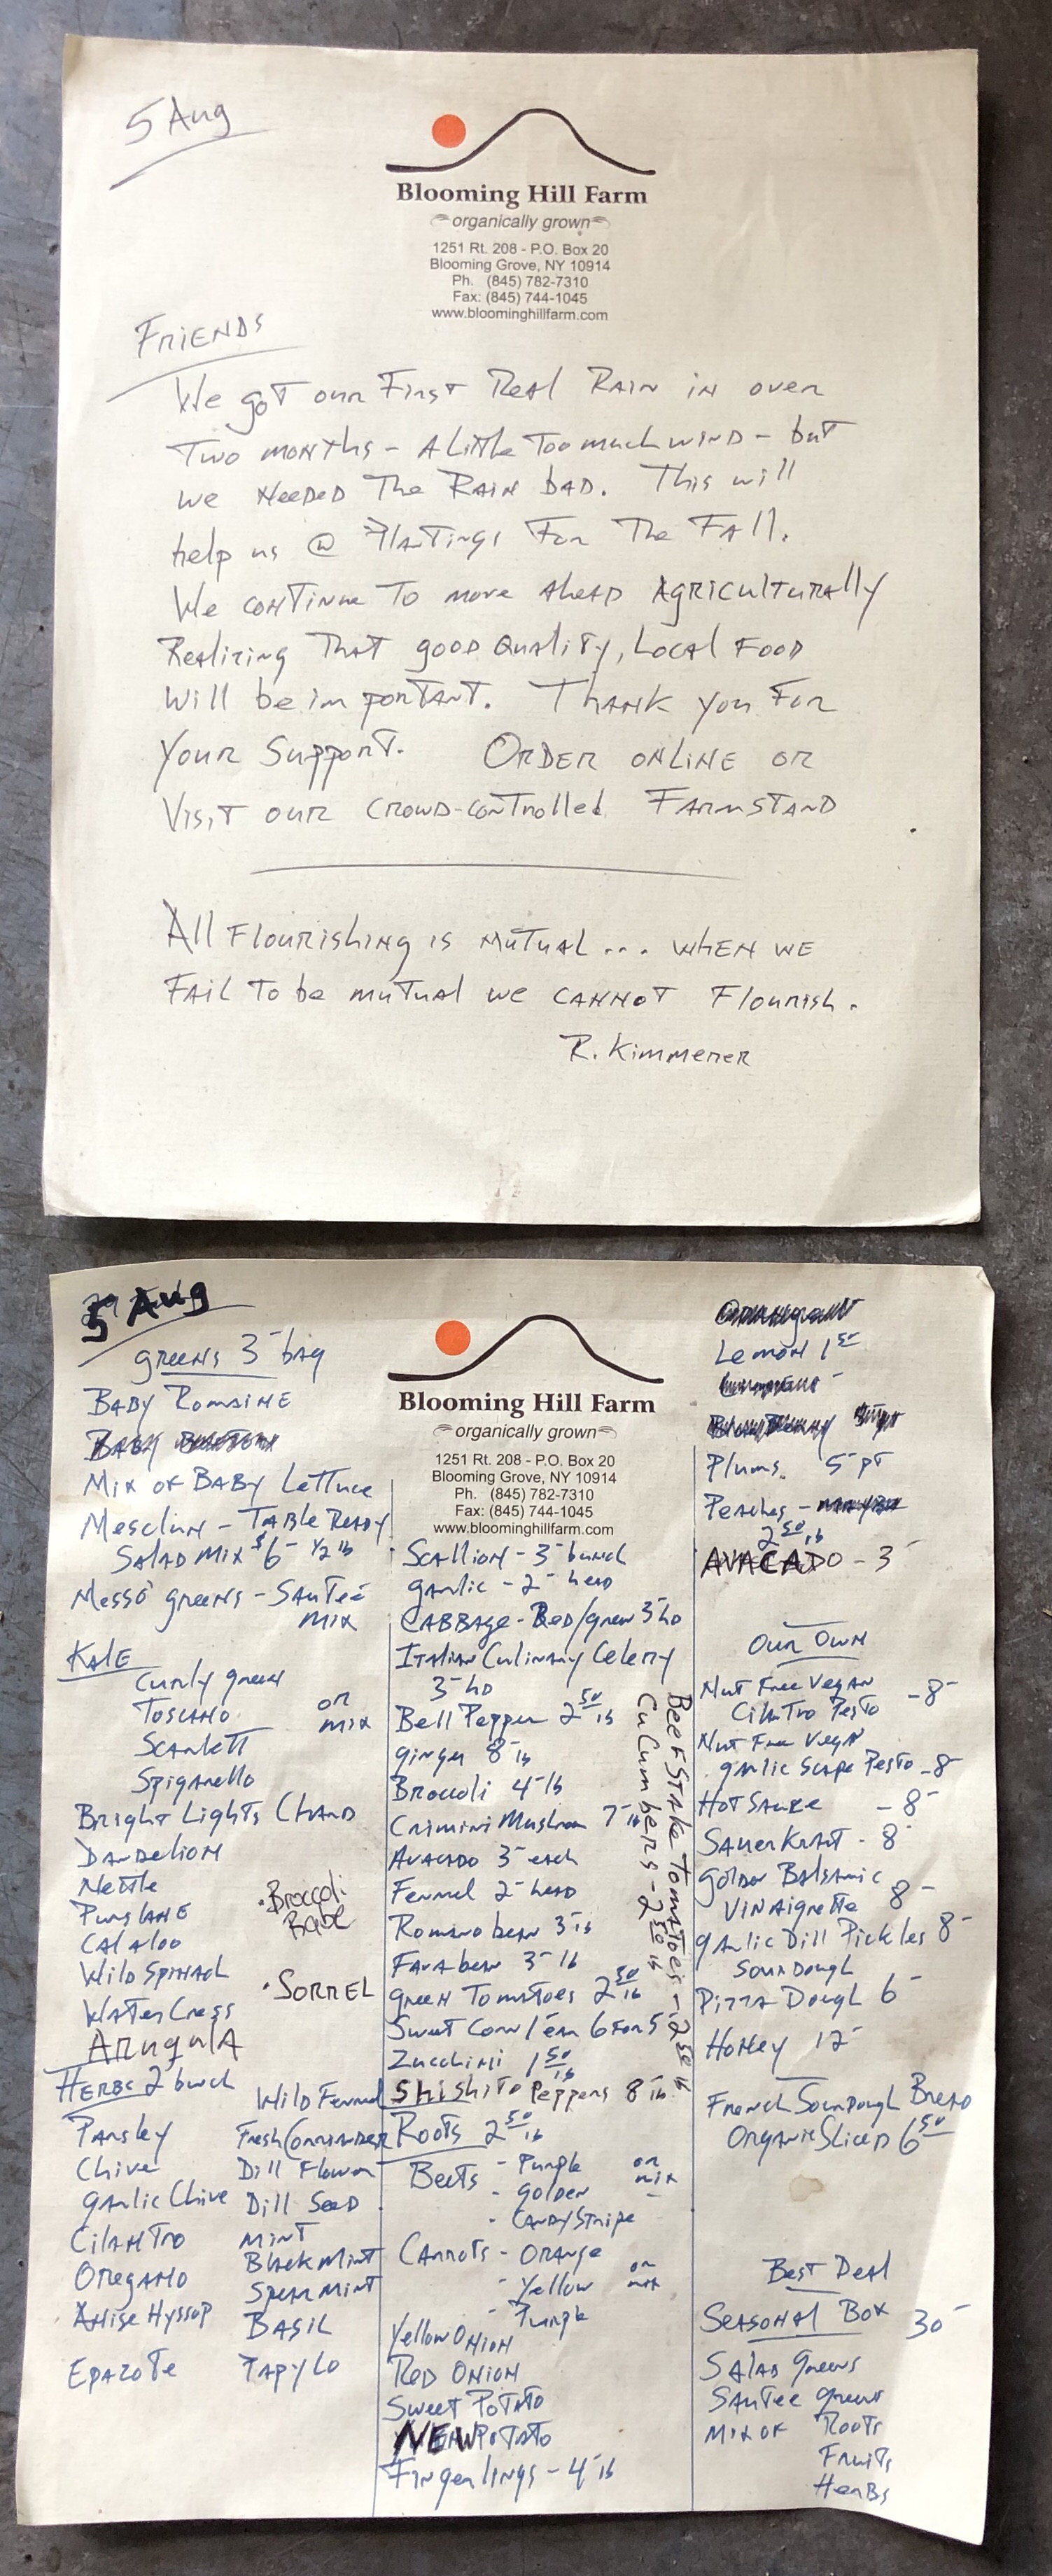 5 Aug
Blooming Hill Farm
organically grown
1251 Rt. 208 - P.O. Box 20
Blooming Grove, NY 10914
Ph. (845) 782-7310
Fax: (845) 744-1045
www.bloominghillfarm.com
FRIENDS
We got our First Real Rain in over
Two months - A Little Too much wind - but
we Needed The Rain bad. This will
help us @ Plantings For The Fall.
We continue To move Ahead Agriculturally
Realizing That good Quality, Local Food
Will be important. Thank you For
Your Support. Order online or
Visit our crowd-controlled Farmstand
All Flourishing is mutual... when we
Fail To be mutual we cannot Flourish.
R. Kimmerer
5 Aug
greens 3- bag
Baby Romaine
Mix of Baby Lettuce
Mesclun - Table Ready
Salad Mix $6- 1/2 lb
Messo greens - Sauteé
mix
Kale
Curly green
Toscano
or
mix
Scarlett
Spigarello
Bright Lights Chard
Dandelion
Nettle
Purslane
Calaloo
Wild Spinach
Water Cress
Arugula
· Broccoli
Babe
· Sorrel
Herbs 2 bunch
Parsley
Chive
garlic Chive
Cilantro
Oregano
Anise Hyssop
Epazote
Wild Fennel
Fresh Coriander
Dill Flower
Dill Seed
Mint
Black Mint
Spearmint
Basil
Papylo
Blooming Hill Farm
organically grown
1251 Rt. 208 - P.O. Box 20
Blooming Grove, NY 10914
Ph. (845) 782-7310
Fax: (845) 744-1045
www.bloominghillfarm.com
Scallion - 3- bunch
garlic - 2- head
Cabbage - Red/green 3- hd
Italian Culinary Celery
3- hd
Bell Pepper 2 50 lb
ginger 8- lb
Broccoli 4- lb
Crimini Mushroom 7- lb
Avacado 3- each
Fennel 2- head
Romano bean 3- lb
Fava bean 3- lb
green Tomatoes 2 50 lb
Sweet Corn 1 ear 6 For 5-
Zucchini 1 50 lb
Shishito Peppers 8 lb
Beef Stake Tomatoes - 2 50 lb
Cucumbers - 2 50 lb
Roots 2 50 lb
Beets - Purple
- golden
- Candy Stripe
or
mix
Carrots - Orange
- Yellow
- Purple
or
mix
Yellow Onion
Red Onion
Sweet Potato
New Potato
Fingerlings - 4- lb
Lemon 1 50
Plums 5- pt
Peaches -
2 50 lb
Avacado - 3-
Our Own
Nut Free Vegan
Cilantro Pesto - 8-
Nut Free Vegan
garlic Scape Pesto - 8-
Hot Sauce - 8-
Sauerkraut - 8-
golden Balsamic
Vinaigrette 8-
garlic Dill Pickles 8-
Sourdough
Pizza Dough 6-
Honey 12-
French Sourdough Bread
Organic Sliced 6 50
Best Deal
Seasonal Box 30-
Salad greens
Sautee greens
Mix of Roots
Fruits
Herbs